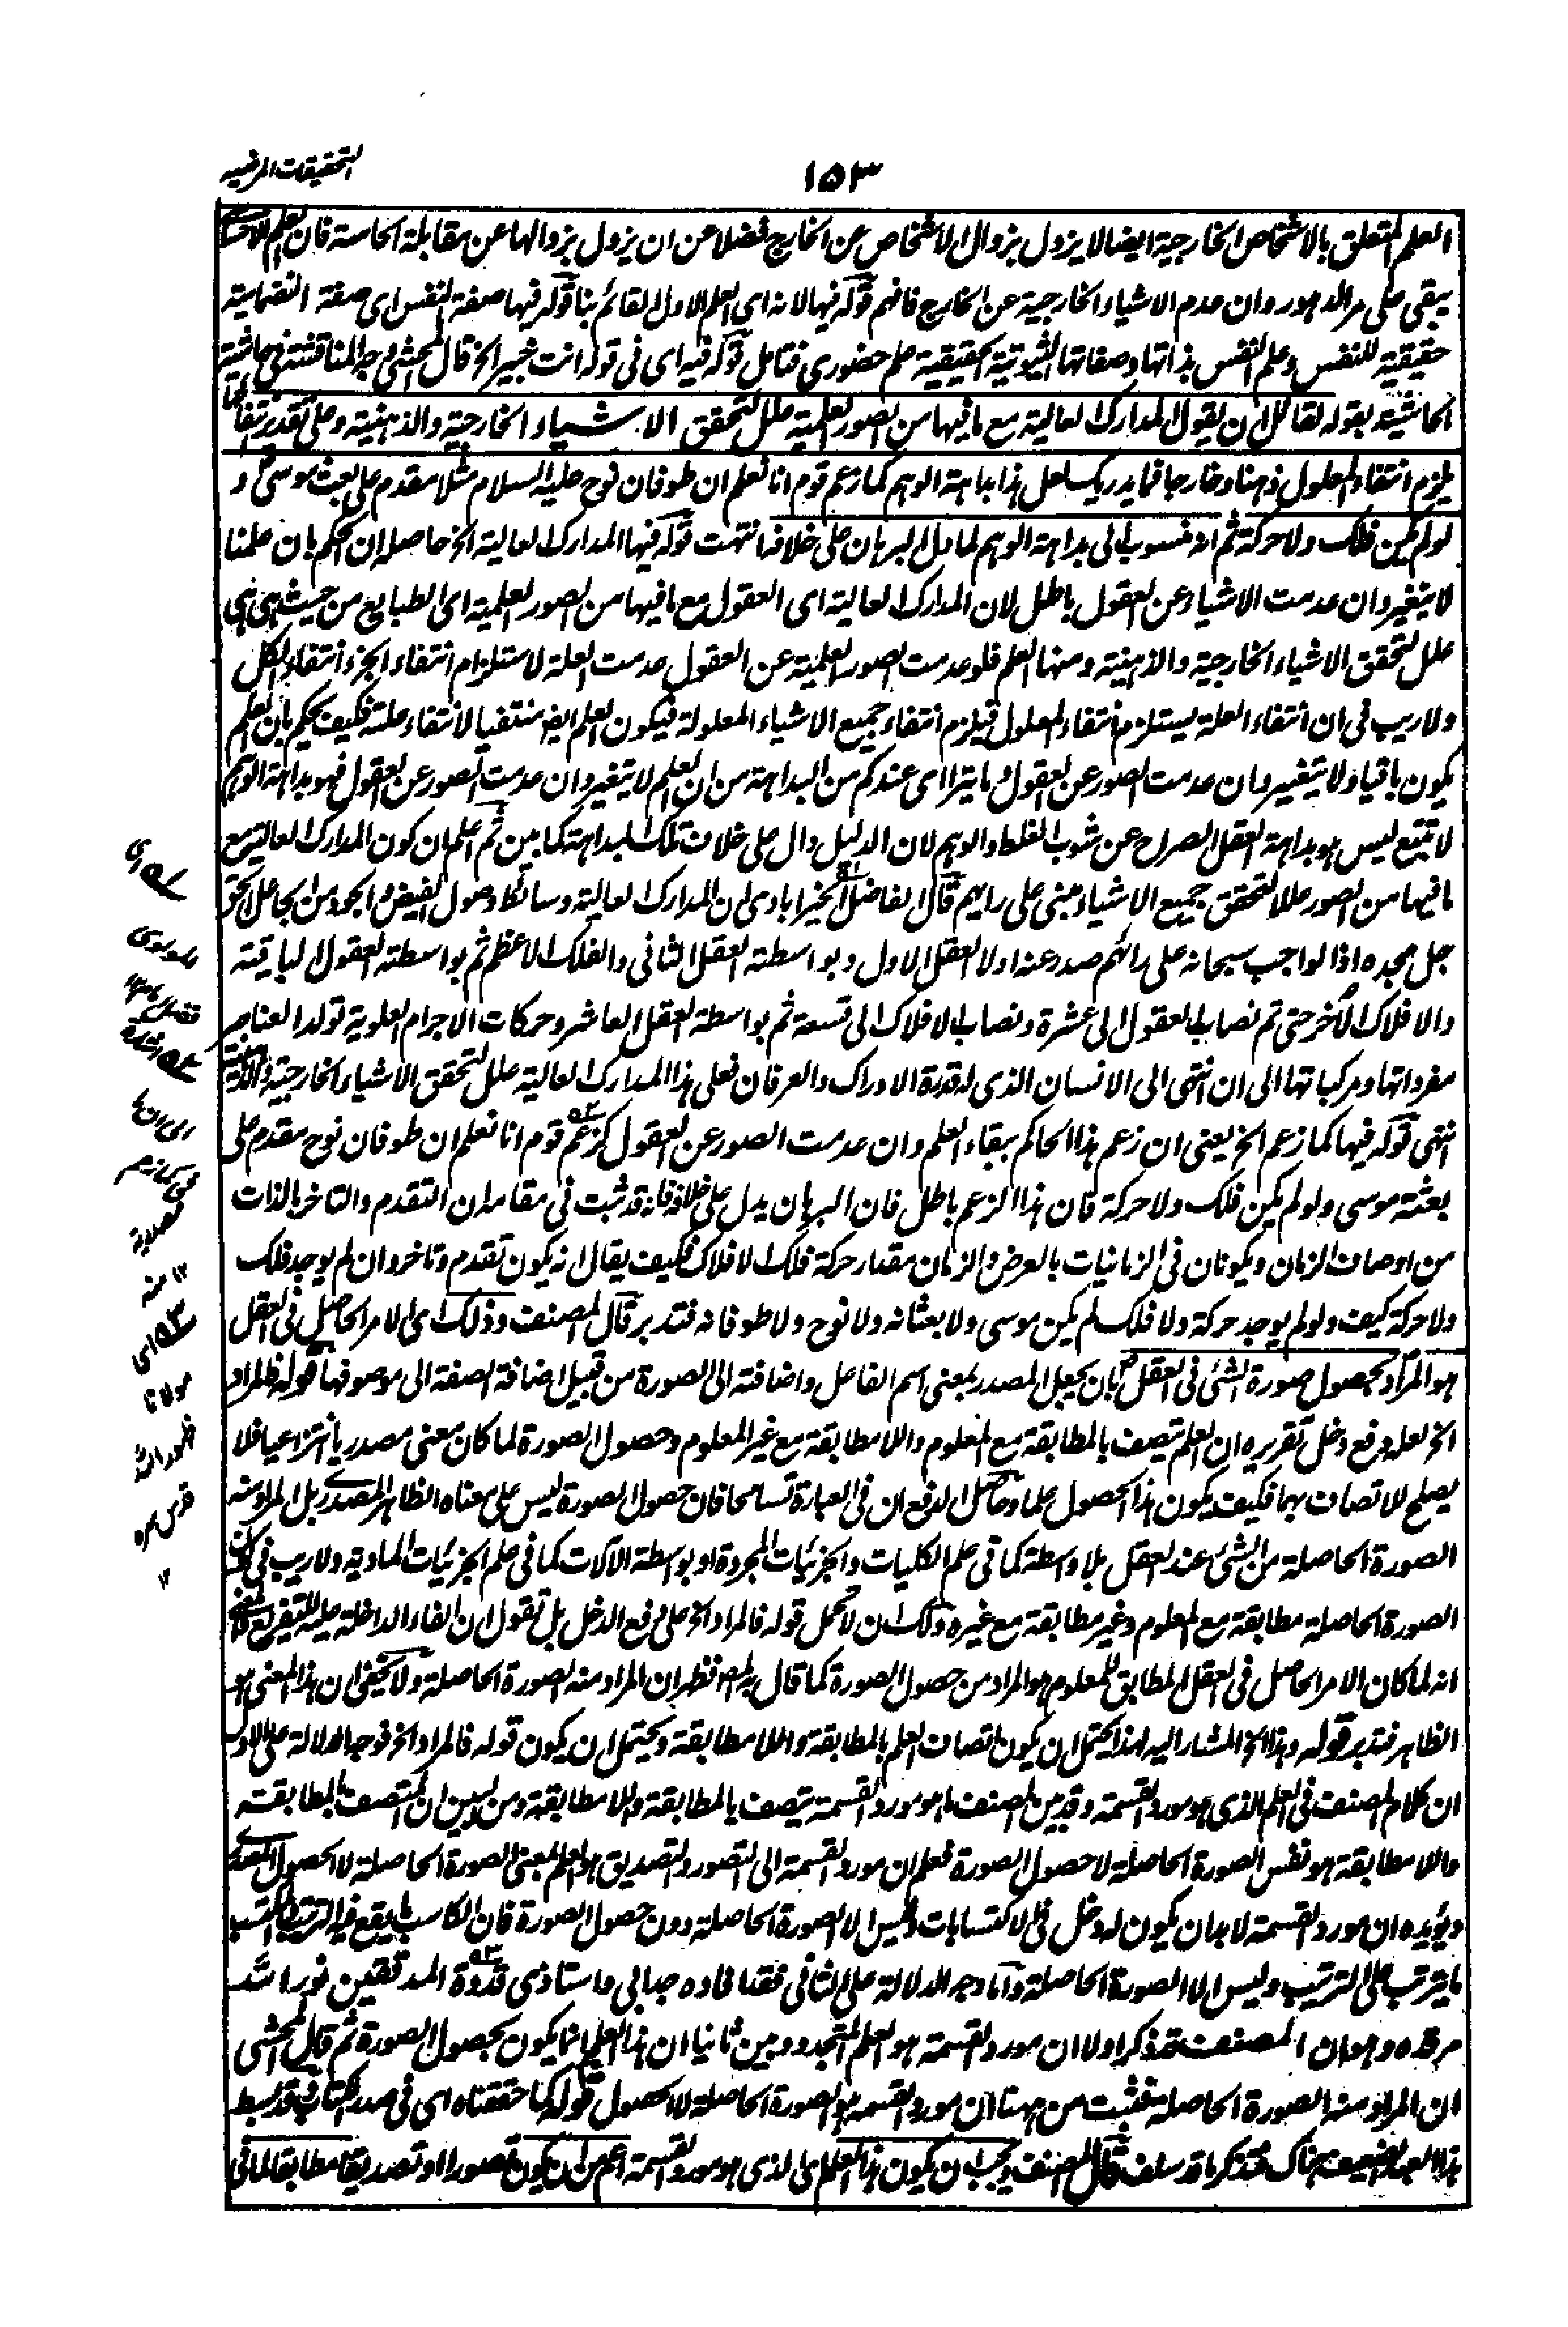 التحقيقات المرضيه
١٥٣
العلم المتعلق بالاشخاص الخارجية ايضا لا يزول بزوال الاشخاص عن الخارج فضلا عن ان يزول بزوالها عن مقابلة الحاسة فان العلم الاحساسي
يبقى على مر الدهور وان عدم الاشياء الخارجية عن الخارج فافهم قوله فيها لانه اى العلم الاول القائم بنا قوله فيها صفة النفس اى صفة انضمامية
حقيقية للنفس وعلم النفس بذاتها وصفاتها الثبوتية الحقيقية علم حضورى فتامل قوله فيه اى فى قوله انت خبير الخ قال المحشى وجه المناقشة فى حاشية
الحاشية بقوله لقائل ان يقول المدارك العالية مع ما فيها من الصور العلمية علل لتحقق الاشياء الخارجية والذهنية وعلى تقدير انتفائها
يلزم انتفاء المعلول ذهنا وخارجا فما يدريك لعل هذا بداهة الوهم كما زعم قوم انا نعلم ان طوفان نوح عليه السلام مثلا مقدم على بعث موسى و
لو لم يكن فلك ولا حركة ثم انه منسوب الى بداهة الوهم لما دل البرهان على خلافه انتهت قوله فيها المدارك العالية الخ حاصله ان الحكم بان علمنا
لا يتغير وان عدمت الاشياء عن العقول باطل لان المدارك العالية اى العقول مع ما فيها من الصور العلمية اى الطبايع من حيث هى هى
علل لتحقق الاشياء الخارجية والذهنية ومنها العلم فلو عدمت الصور العلمية عن العقول عدمت العلة لاستلزام انتفاء الجزء انتفاء الكل
ولا ريب فى ان انتفاء العلة يستلزم انتفاء المعلول فيلزم انتفاء جميع الاشياء المعلولة فيكون العلم ايضا منتفيا لانتفاء علته فكيف يحكم بان العلم
يكون باقيا ولا يتغير وان عدمت الصور عن العقول وما يتراءى عندكم من البداهة من ان العلم لا يتغير وان عدمت الصور عن العقول فهو بداهة الوهم
لا تتبع ليس هو بداهة العقل الصراح عن شوب الغلط والوهم لان الدليل دال على خلاف تلك البداهة كما بين ثم اعلم ان كون المدارك العالية مع
ما فيها من الصور عللا لتحقق جميع الاشياء مبنى على رايهم قال الفاضل الخيرابادى ان المدارك العالية وسائط وصول الفيض والجود من الجاعل الحق
جل مجده اذ الواجب سبحانه على رائهم صدر عنه اولا العقل الاول وبواسطته العقل الثانى والفلك الاعظم ثم بواسطته العقول الباقية
والافلاك الاخر حتى تم نصاب العقول الى عشرة ونصاب الافلاك الى تسعة ثم بواسطة العقل العاشر وحركات الاجرام العلوية تولد العناصر
مفرداتها ومركباتها الى ان انتهى الى الانسان الذى له قدرة الادراك والعرفان فعلى هذا المدارك العالية علل لتحقق الاشياء الخارجية والذهنية
انتهى قوله فيها كما زعم الخ يعنى ان زعم هذا الحاكم ببقاء العلم وان عدمت الصور عن العقول كزعم قوم انا نعلم ان طوفان نوح مقدم على
بعثة موسى ولو لم يكن فلك ولا حركة فان هذا الزعم باطل فان البرهان يدل على خلافه فانه قد ثبت فى مقامه ان التقدم والتاخر بالذات
من اوصاف الزمان ويكونان فى الزمانيات بالعرض والزمان مقدار حركة فلك الافلاك فكيف يقال انه يكون تقدم وتاخر وان لم يوجد فلك
ولا حركة كيف ولو لم يوجد حركة ولا فلك لم يكن موسى ولا بعثانه ولا نوح ولا طوفانه فتدبر قال المصنف وذلك اى الامر الحاصل فى العقل
هو المراد بحصول صورة الشئ فى العقل بان يجعل المصدر بمعنى اسم الفاعل واضافته الى الصورة من قبيل اضافة الصفة الى موصوفها قوله فالمراد
الخ لعله دفع دخل تقريره ان العلم يتصف بالمطابقة مع المعلوم واللا مطابقة مع غير المعلوم وحصول الصورة لما كان معنى مصدريا انتزاعيا فلا
يصلح للاتصاف بهما فكيف يكون هذا الحصول علما وحاصل الدفع ان فى العبارة تسامحا فان حصول الصورة ليس على معناه الظاهر المصدرى بل المراد منه
الصورة الحاصلة من الشئ عند العقل بلا واسطة كما فى علم الكليات والجزئيات المجردة او بواسطة الآلات كما فى علم الجزئيات المادية ولا ريب فى كون
الصورة الحاصلة مطابقة مع المعلوم وغير مطابقة مع غيره ولك ان لا تحمل قوله فالمراد الخ على دفع الدخل بل تقول ان الفاء الداخلة عليه للتفريع فالمعنى
انه لما كان الامر الحاصل فى العقل المطابق للمعلوم هو المراد من حصول الصورة كما قال به المص فظهر ان المراد منه الصورة الحاصلة ولا يخفى ان هذا المعنى هو
الظاهر فتدبر قوله وبهذا الخ المشار اليه لهذا يحتمل ان يكون اتصاف العلم بالمطابقة واللا مطابقة ويحتمل ان يكون قوله فالمراد الخ فوجه الدلالة على الاول
ان كلام المصنف فى العلم الذى هو مورد القسمة وقد بين المصنف ما هو مورد القسمة يتصف بالمطابقة واللا مطابقة ومن البين ان المتصف بالمطابقة
واللا مطابقة هو نفس الصورة الحاصلة لا حصول الصورة فعلم ان مورد القسمة الى التصور والتصديق هو العلم بمعنى الصورة الحاصلة لا الحصول المصدرى
ويؤيده ان مورد القسمة لا بد ان يكون له دخل فى الاكتسابات وليس الا الصورة الحاصلة دون حصول الصورة فان الكاسب ما يقع فيه الترتيب والمكتسب
ما يترتب على الترتيب وليس الا الصورة الحاصلة واما وجه الدلالة على الثانى فقد افاده جد ابى واستاذى قدوة المدققين نور الله
مرقده وهو ان المصنف قد ذكر اولا ان مورد القسمة هو العلم المتجدد وبين ثانيا ان هذا العلم انما يكون بحصول الصورة ثم قال المحشى
ان المراد منه الصورة الحاصلة فثبت من ههنا ان مورد القسمة هو الصورة الحاصلة لا الحصول قوله كما حققناه اى فى صدر الكتاب وقد بسط
هذا العبد الضعيف هناك فتذكر ما قد سلف قال المصنف ويجب ان يكون هذا العلم اى الذى هو مورد القسمة اعم من ان يكون تصورا او تصديقا مطابقا لما فى
اى
مولانا
ظهور الله
قدس سره